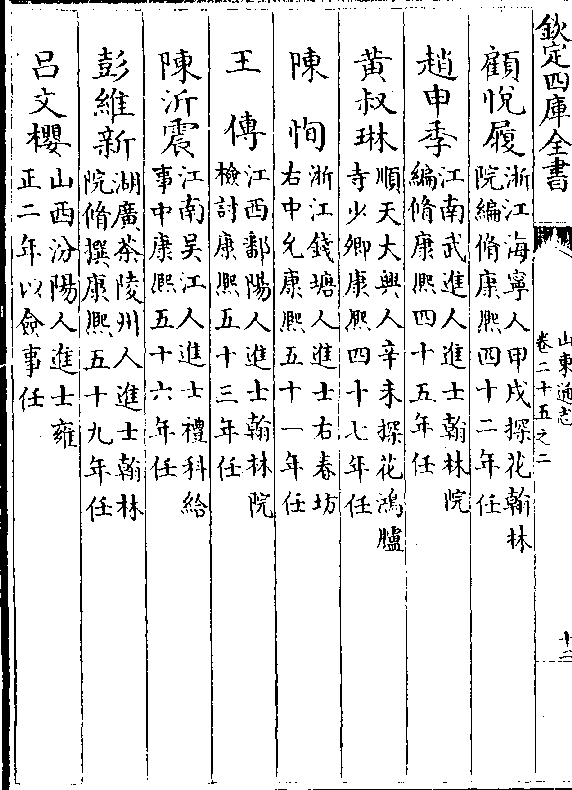 欽定四庫全書
山東通志
卷二十五之二
十二
顧悅履
浙江海寧人甲戌探花翰林
院編脩康熙四十二年任
趙申季
江南武進人進士翰林院
編脩康熙四十五年任
黃叔琳
順天大興人辛未探花鴻臚
寺少卿康熙四十七年任
陳恂
浙江錢塘人進士右春坊
右中允康熙五十一年任
王傳
江西鄱陽人進士翰林院
檢討康熙五十三年任
陳沂震
江南吳江人進士禮科給
事中康熙五十六年任
彭維新
湖廣茶陵州人進士翰林
院脩撰康熙五十九年任
呂文櫻
山西汾陽人進士雍
正二年以僉事任